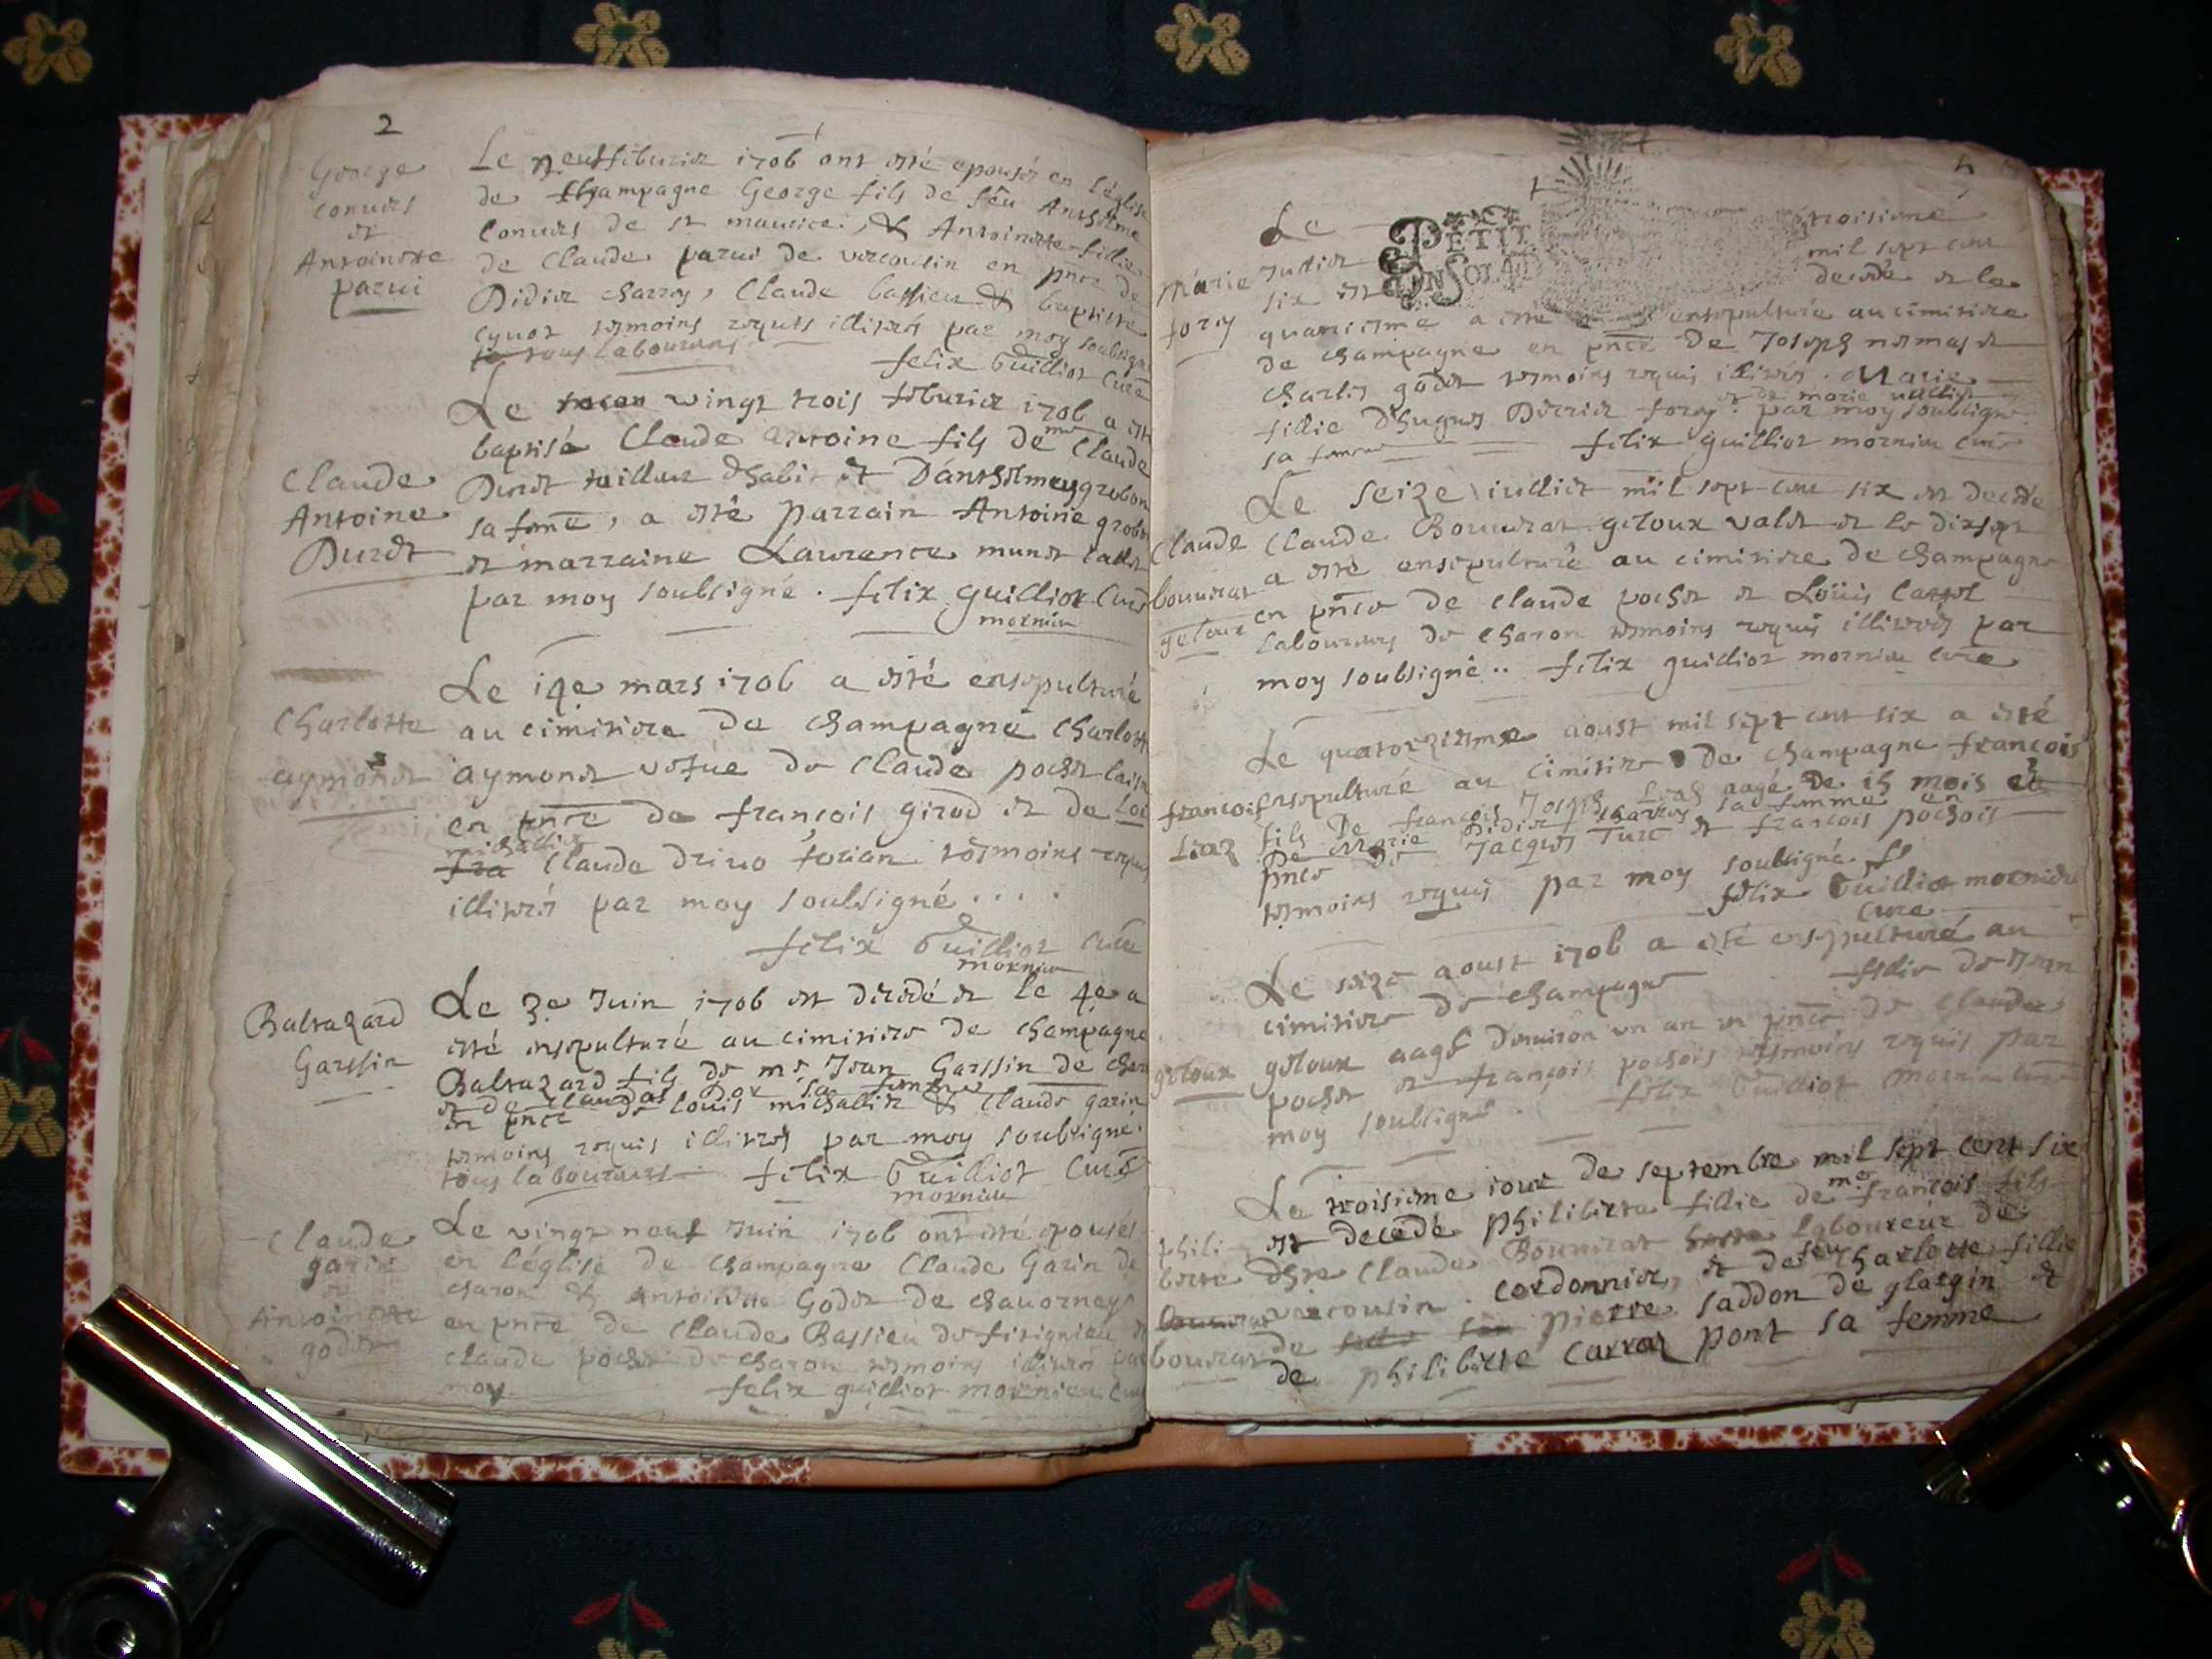 2
George
conuers
et
Antoinette
parui
Le neuf feburier 1706 ont esté epousés en l'église
de Champagne George fils de feu Anthelme
conuers de st maurice, & Antoinette fillie
de Claude parui de vercousin en pnce de
Didier charros, Claude bassieu & baptiste
cynot tesmoins requis illiterés par moy soubsigné
tous laboureurs felix Guilliot Curé
Claude
Antoine
Duret
Le vingt trois feburier 1706 a esté
baptisé Claude antoine fils de me Claude
Duret tailleur dhabit et Danthelmey grobon
sa feme, a esté parrain Antoine grobon
et marraine Laurence munet
par moy soubsigné. felix guilliot Curé
mornieu
Charlotte
aymonet
Le 19e mars 1706 a esté ensepulturé
au cimitiere de champagne Charlotte
aymonet vefue de Claude pochet
en pnce de françois girod et de
michallier
Claude tesmoins requis
illiterés par moy soubsigné....
felix Guilliot Curé
mornieu
Baltazard
Garssin
Le 3e Juin 1706 est décédé et le 4e a
esté ensepulturé au cimitiere de champagne
Baltazard fils de me Jean Garssin de
et de claudaz sa femme
en pnce de louis michallier & claude garin
tesmoins requis illiterés par moy soubsigné.
tous laboureurs felix Guilliot Curé
mornieu
Claude
garin
et
Antoinette
godet
Le vingt neuf Juin 1706 ont esté epousés
en l'église de champagne Claude Garin de
charon & Antoinette Godet de chauornay
en pnce de Claude Bassieu de fitignieu et
claude pochet de charon tesmoins illiterés par
moy felix guilliot mornieu curé
PETIT
EN SOLS
Marie
forey
Le troisieme
Juillet mil sept cent
six est decedé et le
quatriesme a esté ensepulturé au cimitiere
de champagne en pnce de Joseph et
Charles godet tesmoins requis illiterés. Marie
fillie d'hugues forey et de marie
sa femme par moy soubsigné
felix guilliot mornieu curé
Claude
bouuerat
geloux
Le seize iuilliet mil sept cent six est decedé
Claude Bouuerat geloux valet et le dixsept
a esté ensepulturé au cimitiere de champagne
en pnce de claude pochet et Loüis
laboureurs de charon tesmoins requis illiterés par
moy soubsigné.. felix guilliot mornieu curé
françois
Liaz
Le quatorziesme aoust mil sept cent six a esté
ensepulturé au cimitire de champagne françois
fils de françois Joseph Liaz aagé de 15 mois et
de Marie Didier charros sa femme en
pnce de Jacques Turc et françois pochois
tesmoins requis par moy soubsigné
felix Guilliot mornieu
cure
geloux
Le seize aoust 1706 a esté ensepulturé au
cimitiere de champagne fillie de Jean
geloux aagé denuiron un an en pnce de Claude
pochet et françois pochois tesmoins requis par
moy soubsigné. felix Guilliot mornieu curé
phili
berte
bouuerat
Le troisieme iour de septembre mil sept cent six
est decedé philiberte fillie de me francois fils
Claude Bouuerat laboureur de
vercousin. cordonnier, et de feu charlotte fillie
de pierre saddon de glargin et
de philiberte carraz pont sa femme